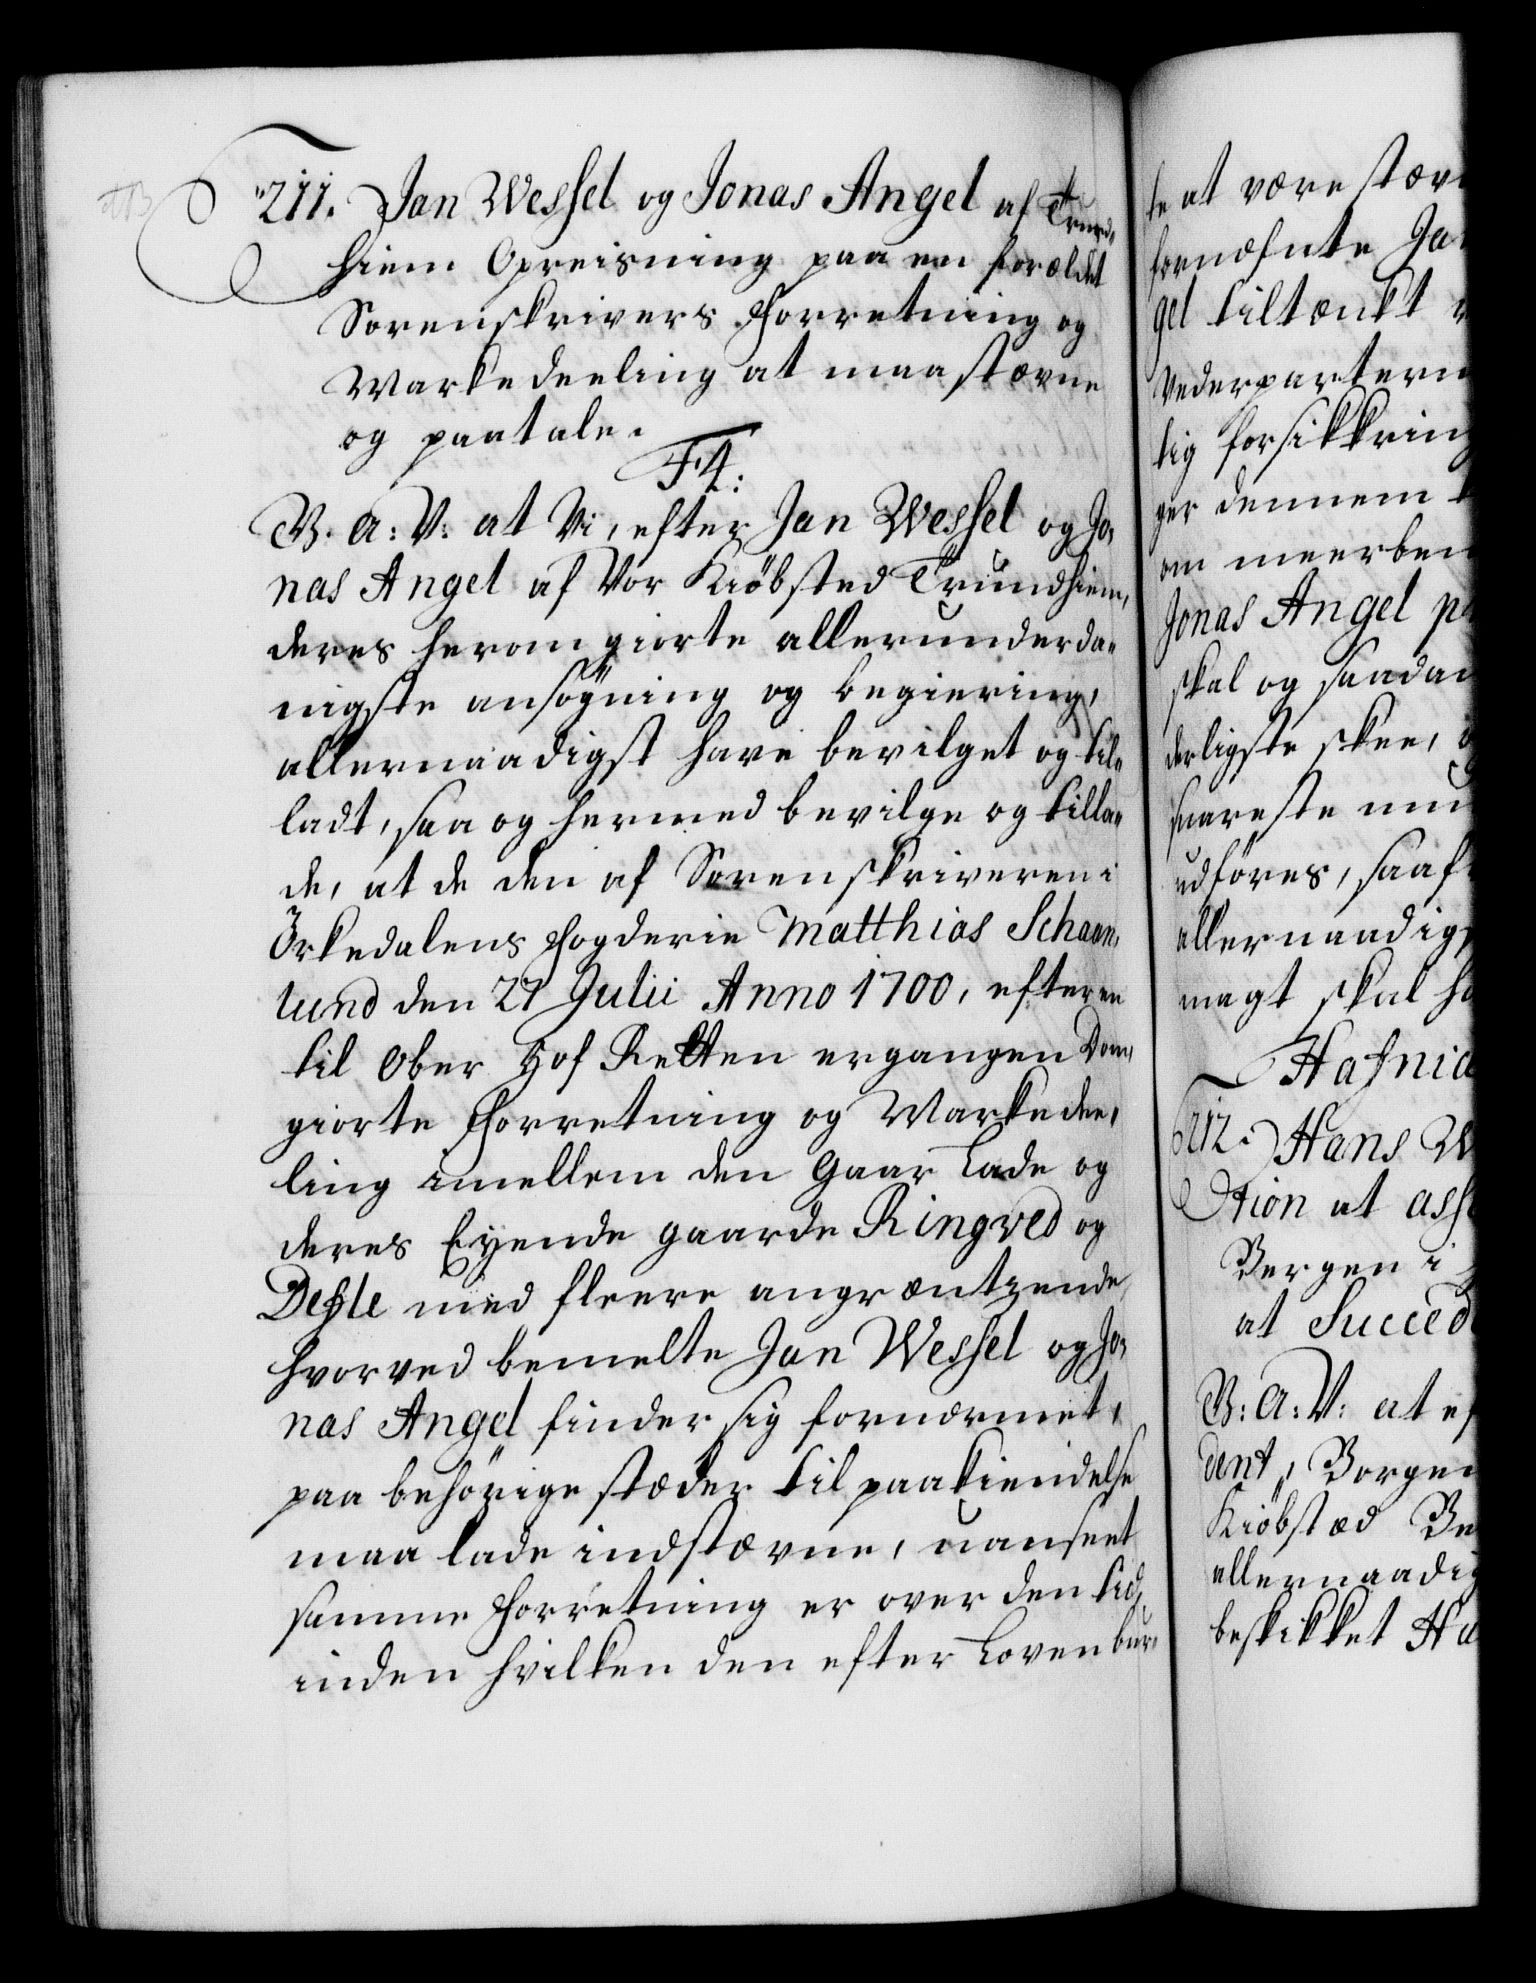 211. Jan Wessel og Jonas Angel af Trund-
hiem Opreisning paa en forældet
Sorenskrivers Forretning og
Markedeeling at maa stævne
og paatale.
F4:
V. A: V: at Vi, efter Jan Wessel og Jo-
nas Angel af Vor Kiöbsted Trundhiem,
deres herom giorte allerunderda-
nigste ansögning og begiering,
allernaadigst have bevilget og til-
ladt, saa og hermed bevilge og tilla-
de, at de den af Sorenskriveren i
Örkedalens Fogderie Matthias Schaan-
lund den 27 Julii Anno 1700, efter en
til Ober Hof Retten ergangen Dom,
giorte Forretning og Markedee-
ling imellem den Gaar Lade og
deres Eyende gaarde Ringved og
Defle med fleere angræntzende,
hvorved bemelte Jan Wessel og Jo-
nas Angel finder sig fornærmet,
paa behörige stæder til paakiendelse
maa lade indstævne, uanseet
samme Forretning er over den tid,
inden hvilken den efter Loven bur-
te at være stæv
fornæfnte Ja
gel tiltænkt
Vederpartern
tig forsikkring
ger dennem
om meerbem
Jonas Angel p
skal og saadan
derligste skee,
snareste mu
udföres, saaf
allernaadigs
magt skal ha
Hafniæ
212. Hans W
tion at asse
Bergen i
at Succed
V: A: V: at ef
dent, Borgem
Kiöbstæd Be
allernaadig
beskikket Ha